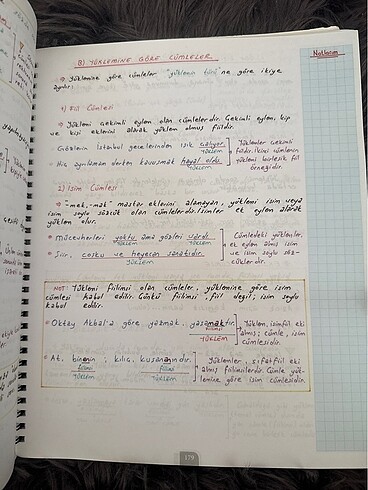 B) YÜKLEMİNE GÖRE CÜMLELER
Notlarım
⇒ Yüklemine göre cümleler "yüklemin türü"ne göre ikiye
ayrılır:
1) Fiil Cümlesi
⇒ Yüklemi çekimli eylem olan cümlelerdir. Çekimli eylem, kip
ve kişi eklerini alarak yüklem olmuş fiildir.
Göklerin İstanbul gecelerinden ışık çalıyor.
YÜKLEM
Hiç ayrılmam derken kavuşmak hayal oldu.
YÜKLEM
Yüklemler çekimli
fiildir. İkinci cümlenin
yüklemi birleşik fiil
örneğidir.
2) İsim Cümlesi
⇒ "-mek, -mak" mastar eklerini alamayan, yüklemi isim veya
isim soylu sözcük olan cümlelerdir. İsimler ek eylem alarak
yüklem olur.
Mücevherleri yoktu ama gözleri vardı.
YÜKLEM YÜKLEM
Şiir, coşku ve heyecan sanatıdır.
YÜKLEM
Cümledeki yüklemler,
ek eylem almış isim
ve isim soylu söz-
cüklerdir.
NOT: Yüklemi fiilimsi olan cümleler, yüklemine göre isim
cümlesi kabul edilir. Çünkü fiilimsi, fiil değil; isim soylu
kabul edilir.
Oktay Akbal'a göre yazmak, yaşamaktır.
fiilimsi
YÜKLEM
Yüklem, isim fiil eki
almış; cümle, isim
cümlesidir.
At, binenin; kılıç, kuşananındır.
fiilimsi fiilimsi
YÜKLEM YÜKLEM
Yüklemler, sıfat fiil eki
almış fiilimsilerdir. Cümle yük-
lemine göre isim cümlesidir.
179